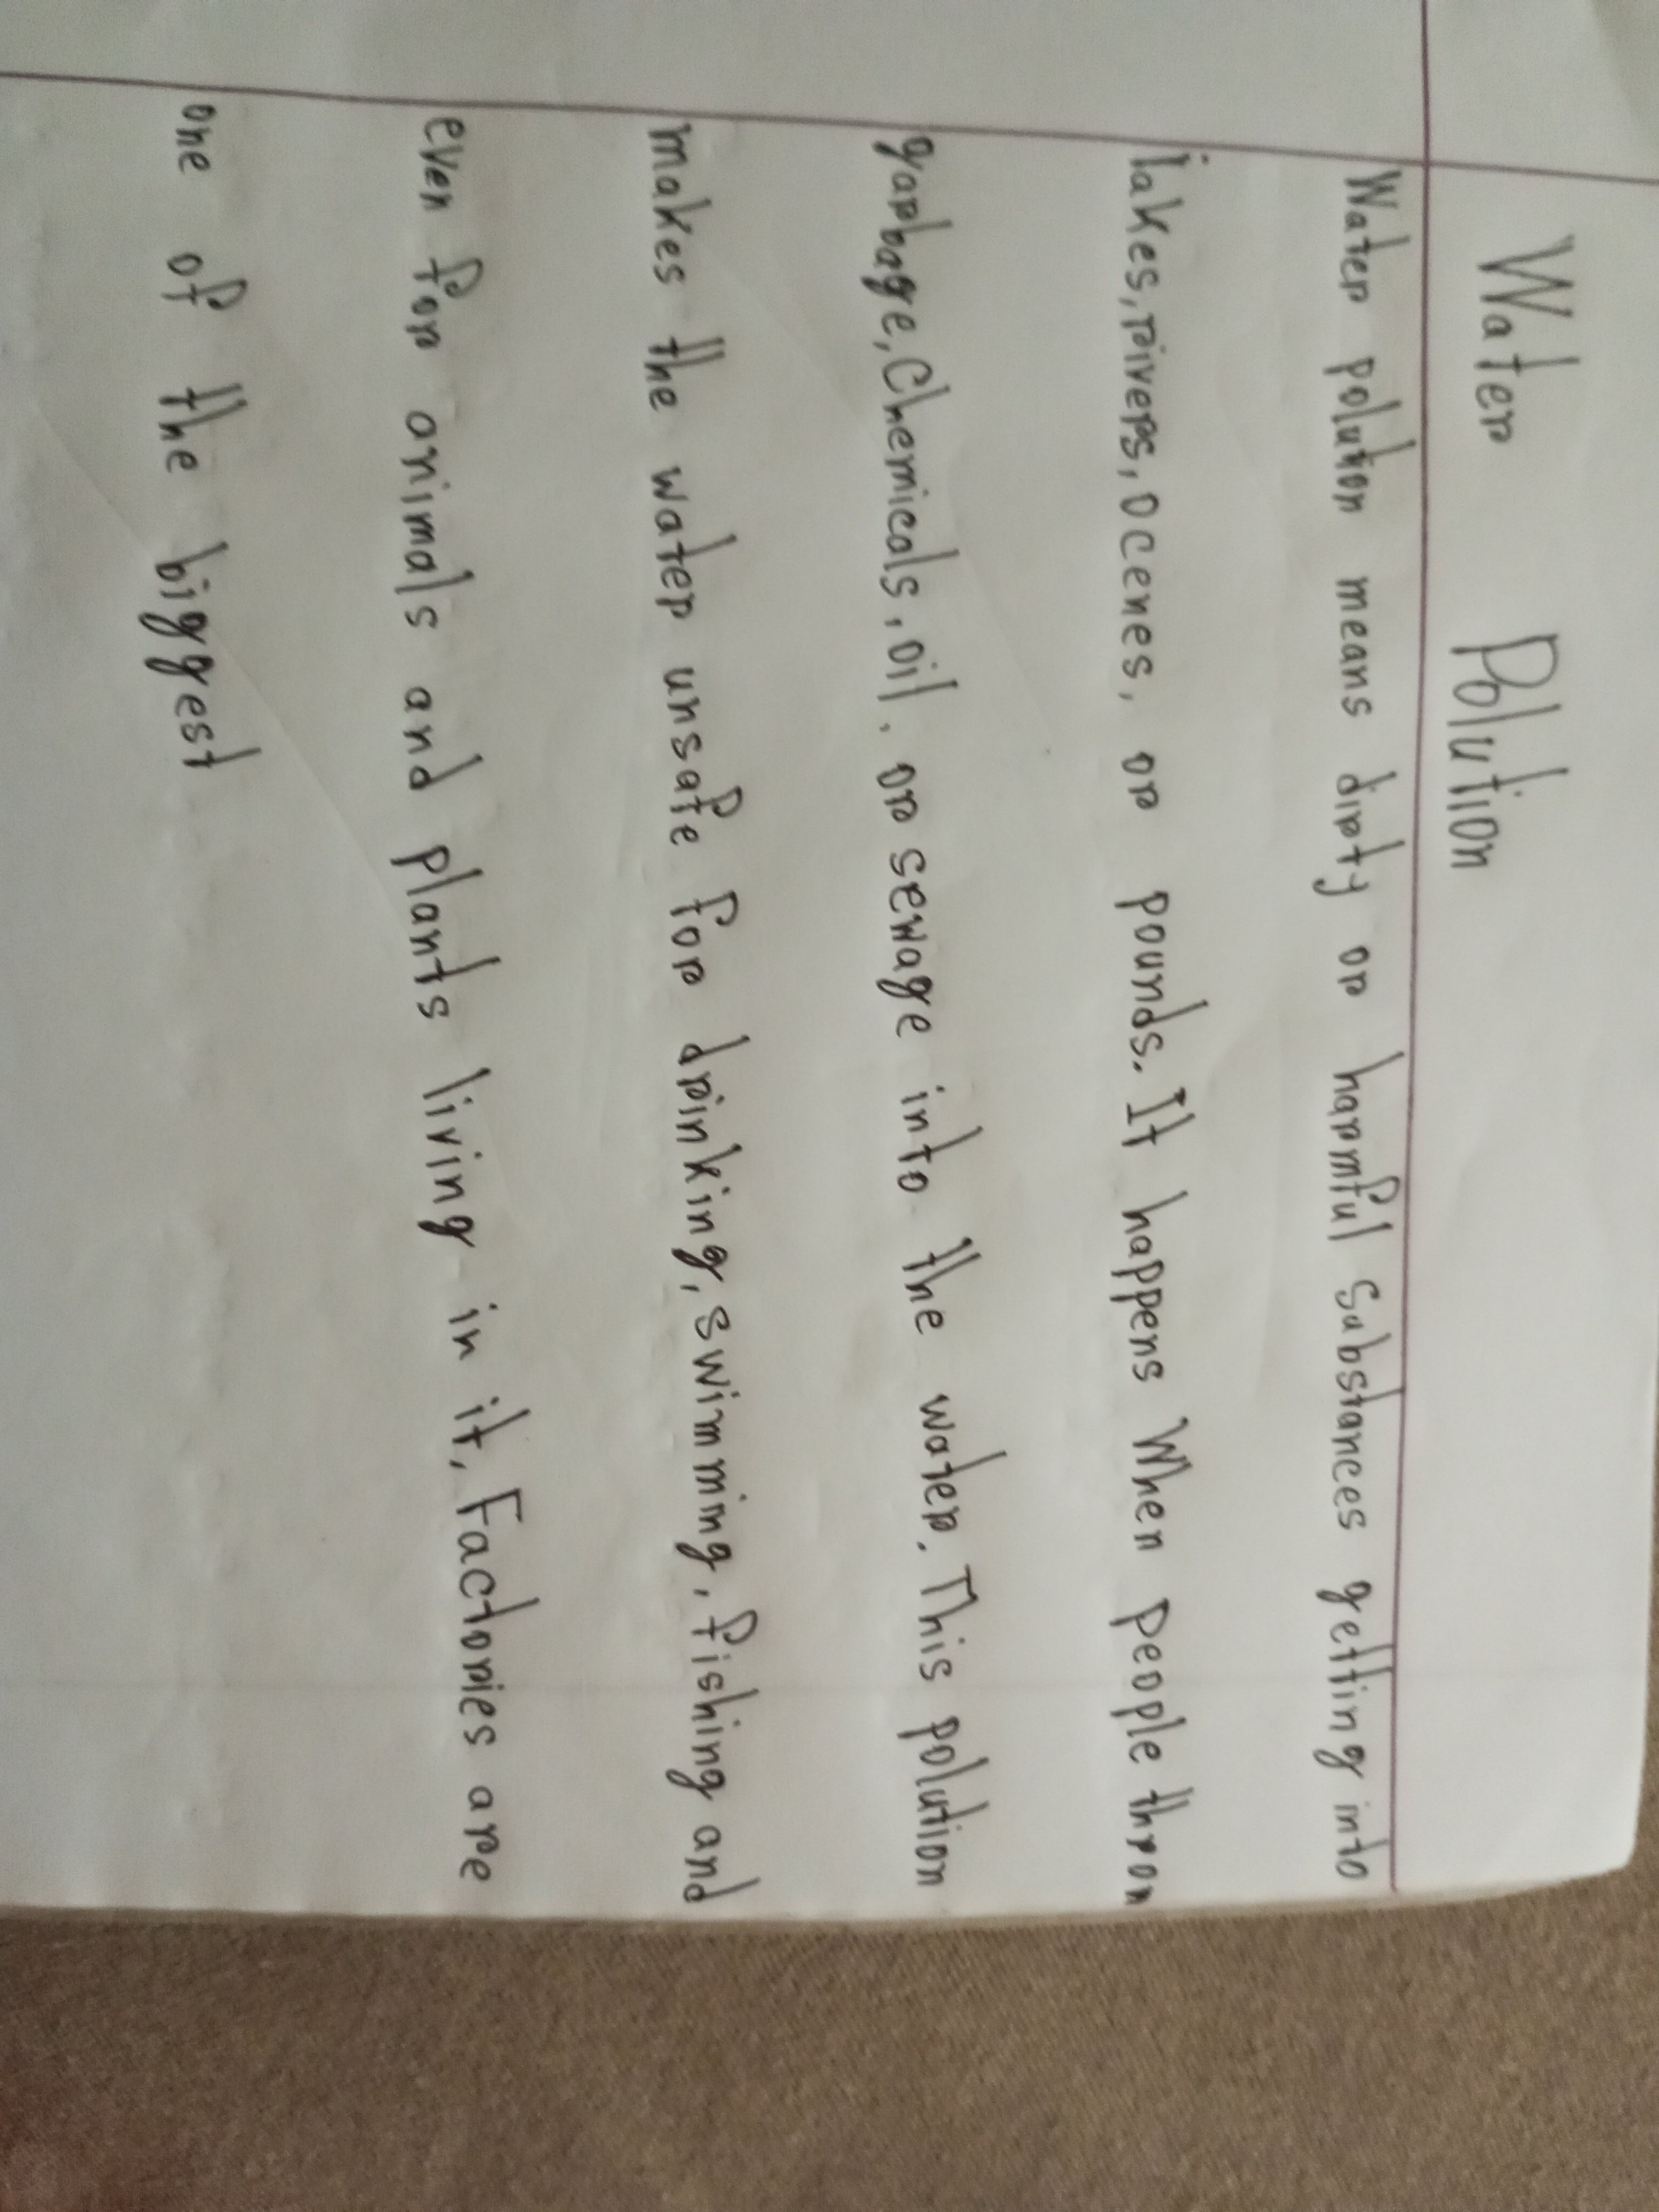 Water Polution
Water polution means dirty or harmful Substances getting into
lakes, rivers, ocenes, or pounds. It happens When people throw
garbage, Chemicals, oil, or sewage into the water. This polution
makes the water unsafe for drinking, swimming, fishing and
even for animals and plants living in it, Factories are
one of the biggest